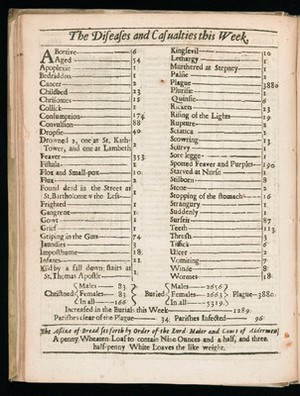 The Diseases and Casualties this Week.
Abortive 6
Aged 54
Apoplexie 1
Bedridden 1
Cancer 2
Childbed 23
Chrisomes 15
Collick 1
Consumption 174
Convulsion 88
Dropsie 40
Drowned 2, one at St. Kath-
Tower, and one at Lambeth 2
Feaver 353
Fistula 1
Flox and Small-pox 10
Flux 2
Found dead in the Street at
St. Bartholomew the Less 1
Frighted 1
Gangrene 1
Gowt 1
Grief 1
Griping in the Guts 74
Jaundies 3
Imposthume 18
Infants
Kild by a fall down stairs at
St. Thomas Apostle 1
Kingsevil 10
Lethargy 1
Murthered at Stepney 1
Palsie 2
Plague 3880
Plurisie 1
Quinsie 6
Rickets 23
Rising of the Lights 19
Rupture 2
Sciatica 1
Scowring 13
Scurvy 1
Sore legge 1
Spotted Feaver and Purples 190
Starved at Nurse 1
Stilborn 8
Stone 2
Stopping of the stomach 16
Strangury 1
Suddenly 1
Surfeit 87
Teeth 113
Thrush 3
Tissick 6
Ulcer 2
Vomiting 7
Winde 8
Wormes 18
Christned Males 83 Females 83 In all 166
Buried Males 2656 Females 2663 In all 5319
Plague 3880.
Increased in the Burials this Week 1289
Parishes clear of the Plague 34 Parishes Infected 96
The Assize of Bread set forth by Order of the Lord Maior and Court of Aldermen,
A penny Wheaten Loaf to contain Nine Ounces and a half, and three
half-penny White Loaves the like weight.